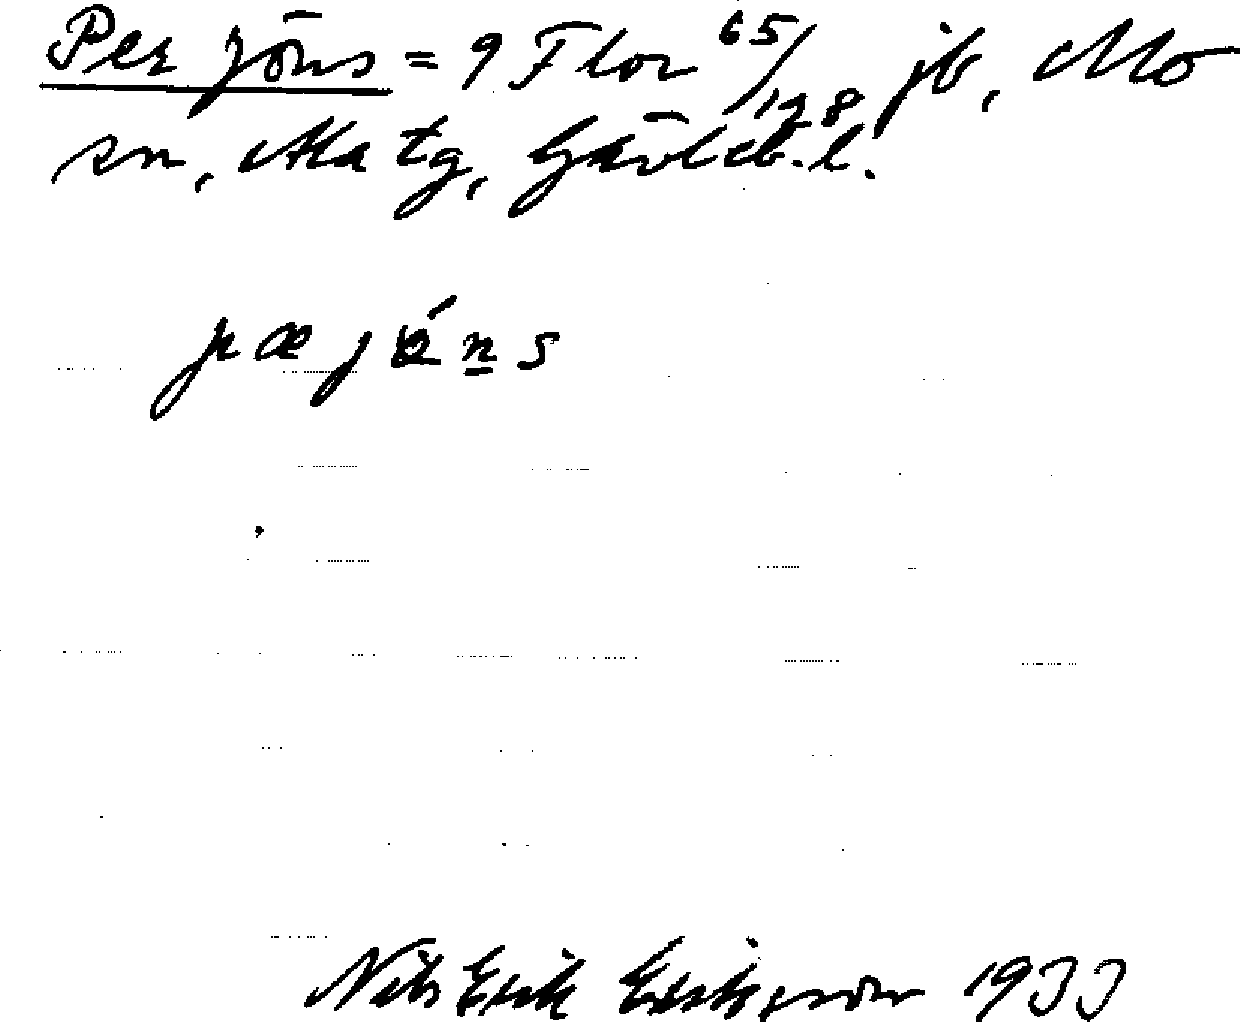 Per Jöns = 9 Flor 65/128 jb, Mo
sn, Ala tg, Gävleb. l.
pæjǿn̲s
Nils Erik Eriksson 1933